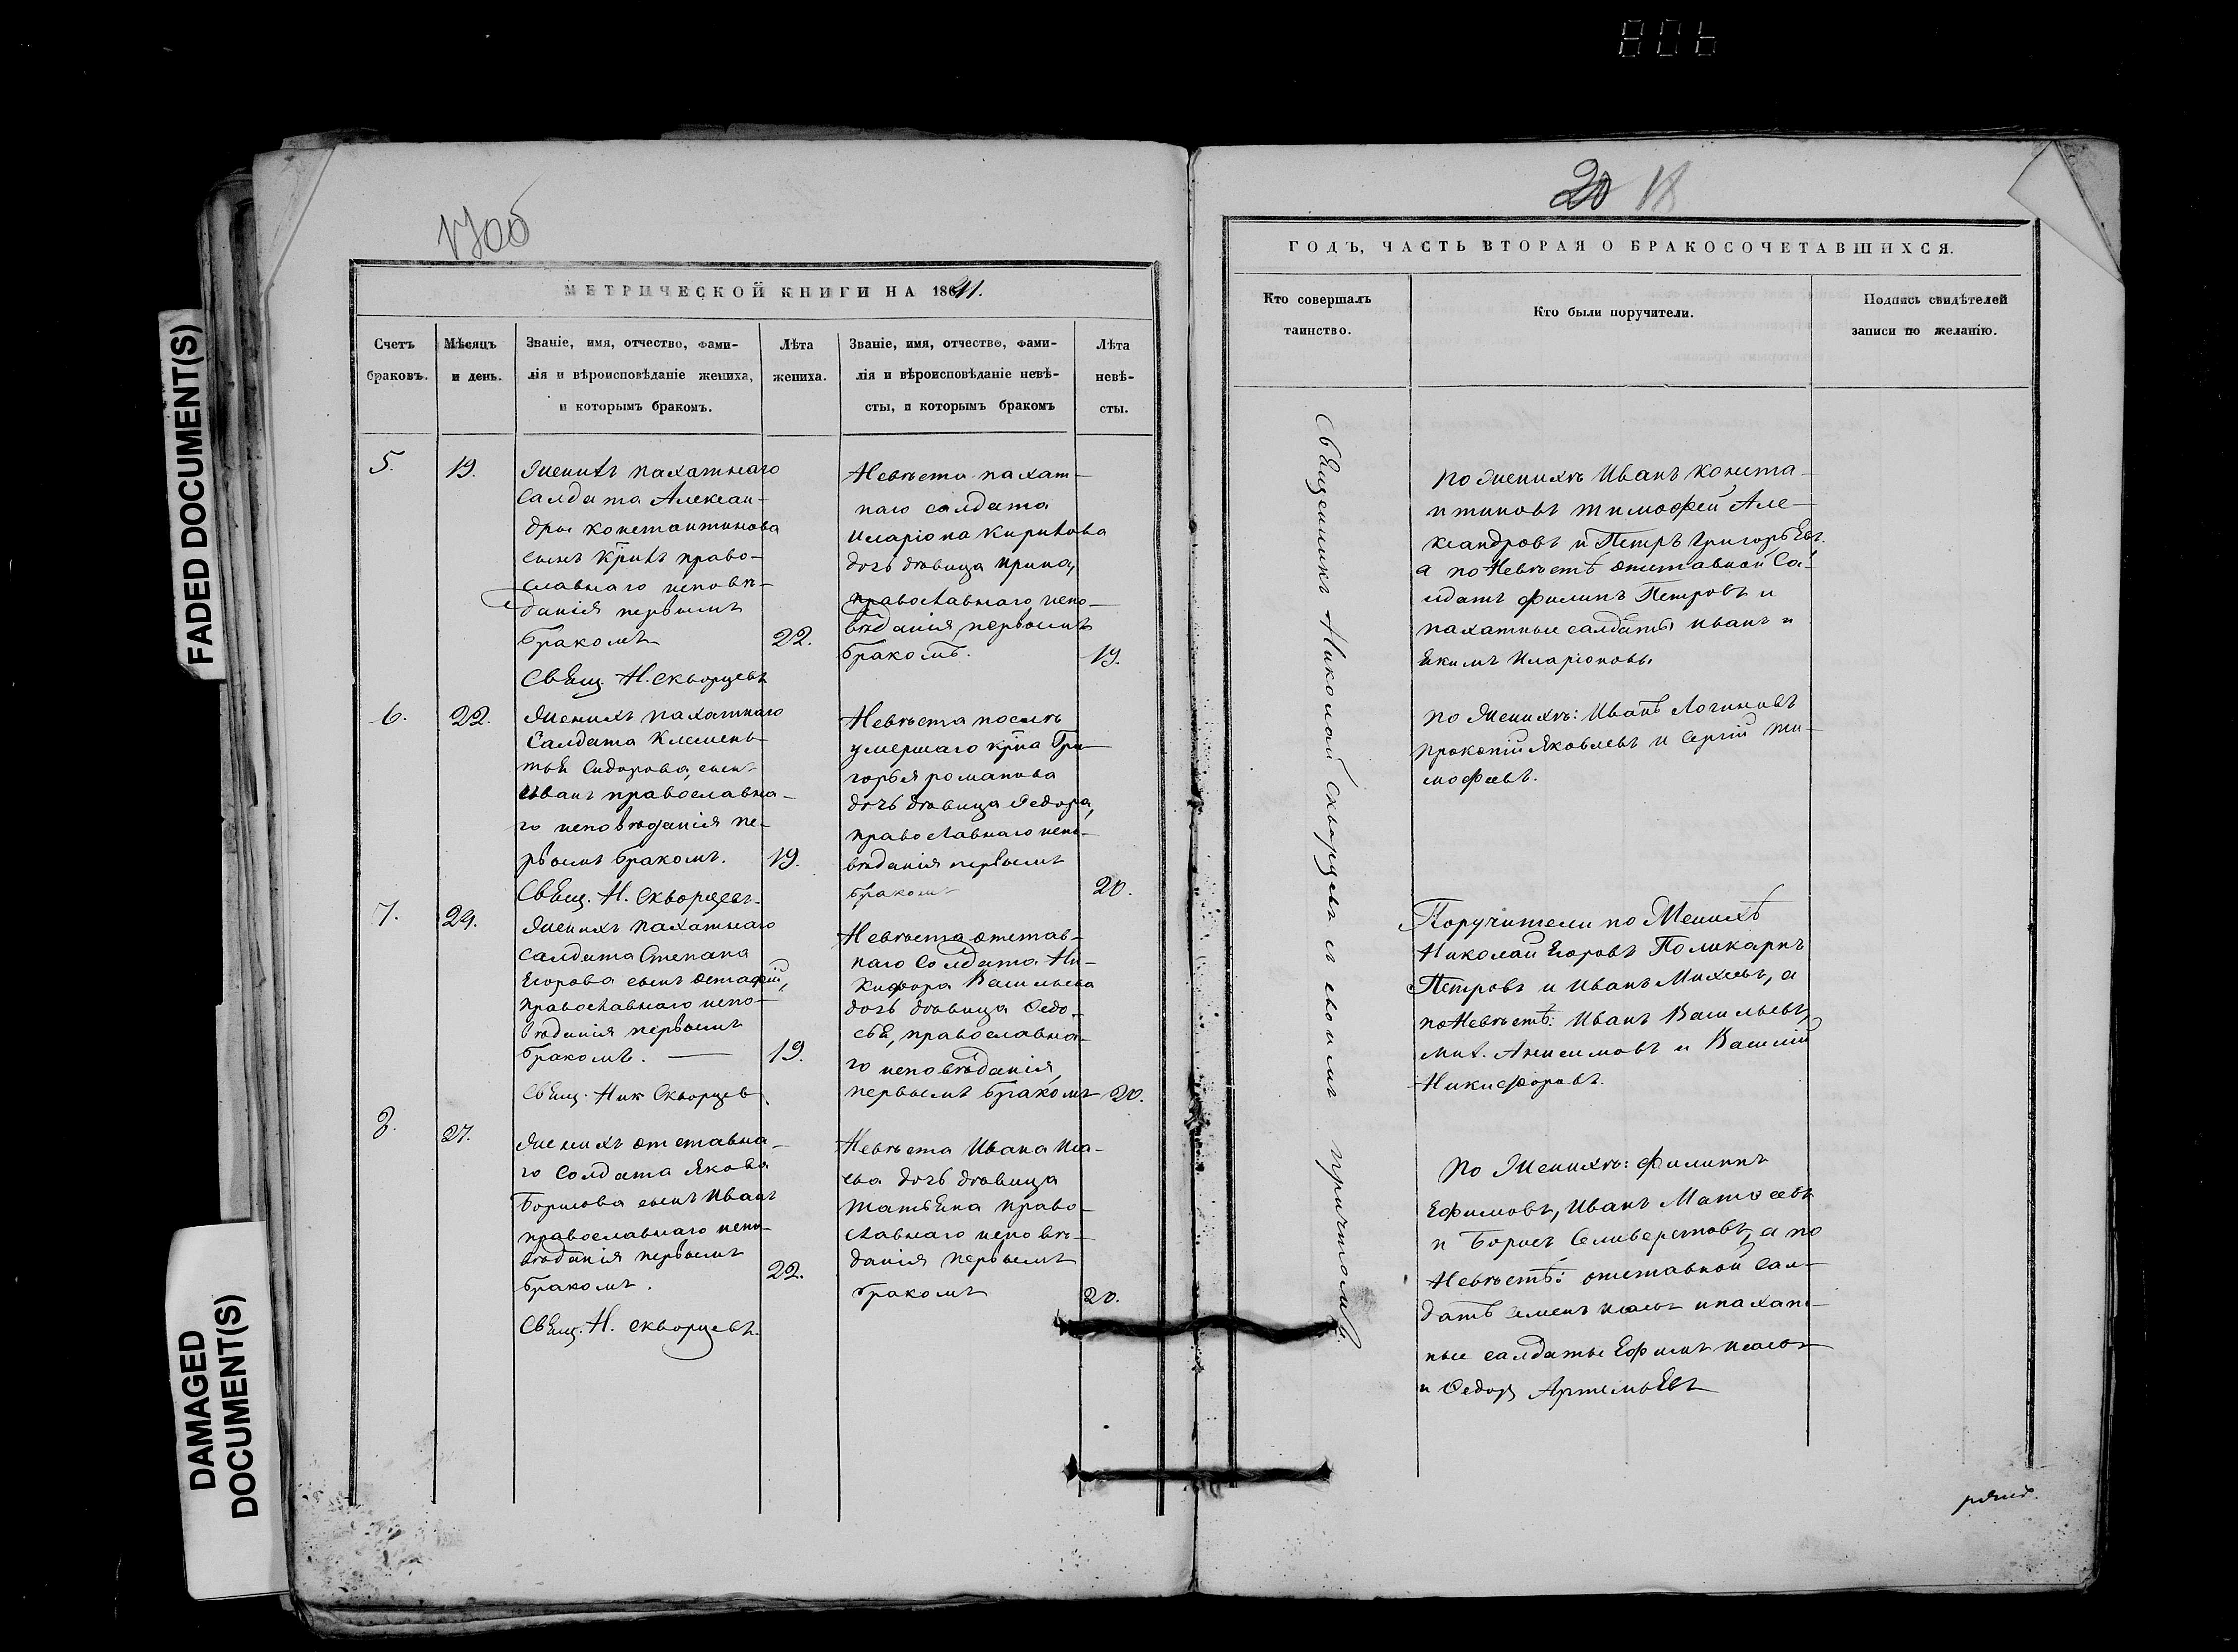 806
FADED DOCUMENT(S)
DAMAGED
DOCUMENT(S)
МЕТРИЧЕСКОЙ КНИГИ НА 186
Счетъ
браковъ.
Мѣсяцъ
и день.
Званіе, имя, отчество, фами-
лія и вѣроисповѣданіе жениха,
и которымъ бракомъ.
Лѣта
жениха.
Званіе, имя, отчество, фами-
лія и вѣроисповѣданіе невѣ-
сты, и которымъ бракомъ
Лѣта
невѣ-
сты.
5.
19.
Женихъ пахатнаго
салдата Алексан-
дры Константинова
сынъ право-
славнаго исповѣ-
данія первымъ
бракомъ
22.
Свящ. Н. Скворцевъ
Невѣста пахат-
наго салдата
Иларіона Кирикова
дочь дѣвица Ирина,
православнаго испо-
вѣданія первымъ
бракомъ.
19.
6.
22.
Женихъ пахатнаго
Салдата Клемень-
тья Сидорова, сынъ
Иванъ православна-
го исповѣданія пе-
рвымъ бракомъ.
19.
Свящ. Н. Скворцевъ.
Невѣста послѣ
умершаго Гри-
горья Романова
дочь дѣвица Ѳедора,
православнаго испо-
вѣданія первымъ
бракомъ
20.
7.
29.
Женихъ пахатнаго
салдата Степана
Егорова сынъ Остафій,
православнаго испо-
вѣданія первымъ
бракомъ. —
19.
Свящ. Ник Скворцевъ
Невѣста отстав-
наго Солдата Ни-
кифора Васильева
дочь дѣвица Ѳедо-
сья, православна-
го исповѣданія,
первымъ бракомъ
20.
8.
27.
Женихъ отставна-
го Солдата Якова
Борисова сынъ Иванъ
православнаго испо-
вѣданія первымъ
бракомъ.
22.
Свящ. Н. Скворцевъ.
Невѣста Ивана Иса-
ева дочь дѣвица
Татьяна право-
славнаго исповѣ-
данія первымъ
бракомъ
20.
20 18
ГОДЪ, ЧАСТЬ ВТОРАЯ О БРАКОСОЧЕТАВШИХСЯ.
Кто совершалъ
таинство.
Кто были поручители.
Подпись свидѣтелей
записи по желанію.
Священникъ Николай Скворцевъ съ своимъ причтомъ.
По Женихѣ Иванъ Конста-
нтиновъ Тимофей Але-
ксандровъ и Петръ Григорьевъ.
а по Невѣстѣ отставной Са-
лдатъ Филипъ Петровъ и
пахатные салдаты Иванъ и
Екимъ Иларіоновы
По Женихѣ: Иванъ Логиновъ
Прокопій Яковлевъ и Сергій Ти-
мофеевъ.
Поручители по Женихѣ
Николай Егоровъ Поликарпъ
Петровъ и Иванъ Михеевъ, а
по Невѣстѣ: Иванъ Васильевъ,
Мих. Анисимовъ и Василій
Никифоровъ.
По Женихѣ: Филиппъ
Ефимовъ, Иванъ Матѳеевъ
и Борисъ Селиверстовъ, а по
Невѣстѣ: отставной Сал-
датъ Семенъ Исаевъ и пахат-
ные салдаты Ефимъ Исаевъ
и Ѳедоръ Артемьевъ